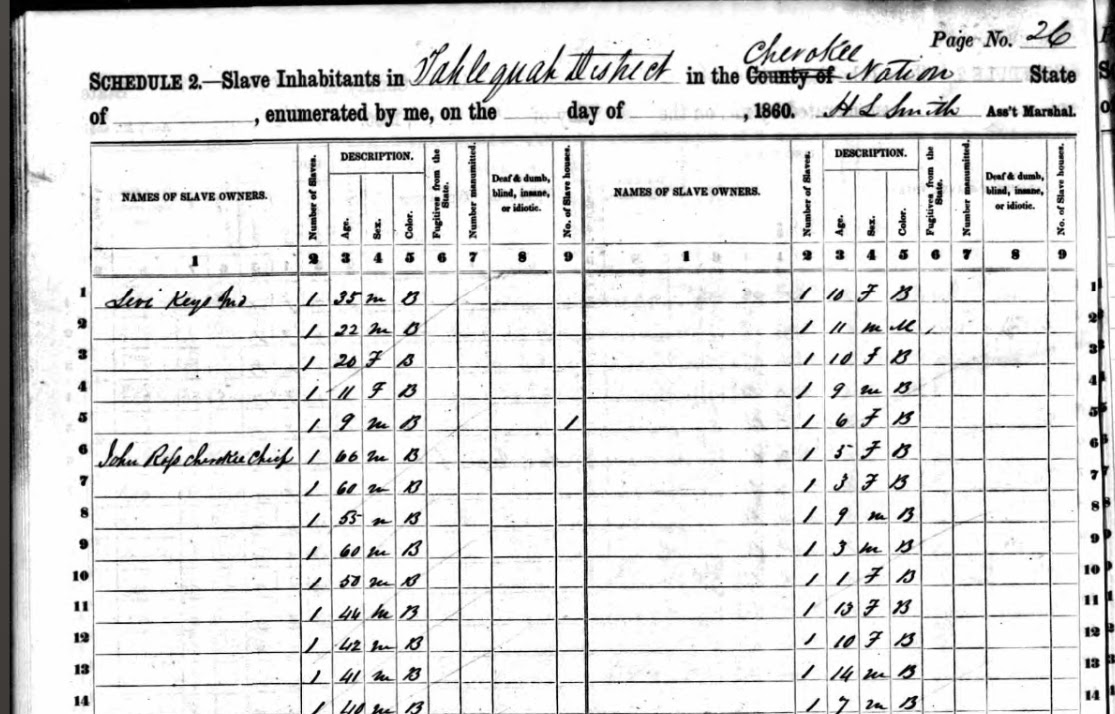 Page No. 26
SCHEDULE 2.—Slave Inhabitants in Tahlequah District in the County of Cherokee Nation State
of , enumerated by me, on the day of , 1860. H L Smith Ass't Marshal.
NAMES OF SLAVE OWNERS. Number of Slaves. DESCRIPTION. Age. Sex. Color. Fugitives from the State. Number manumitted. Deaf & dumb, blind, insane, or idiotic. No. of Slave houses. NAMES OF SLAVE OWNERS. Number of Slaves. DESCRIPTION. Age. Sex. Color. Fugitives from the State. Number manumitted. Deaf & dumb, blind, insane, or idiotic. No. of Slave houses.
1 2 3 4 5 6 7 8 9 1 2 3 4 5 6 7 8 9
1 Levi Keys 1 35 m B 1 10 F B 1
2 1 22 m B 1 11 m M 2
3 1 20 F B 1 10 F B 3
4 1 11 F B 1 9 m B 4
5 1 9 m B 1 1 6 F B 5
6 John Ross Cherokee Chief 1 66 m B 1 5 F B 6
7 1 60 m B 1 3 F B 7
8 1 55 m B 1 9 m B 8
9 1 60 m B 1 3 m B 9
10 1 50 m B 1 1 F B 10
11 1 44 m B 1 13 F B 11
12 1 42 m B 1 10 F B 12
13 1 41 m B 1 14 m B 13
14 1 40 m B 1 7 m B 14